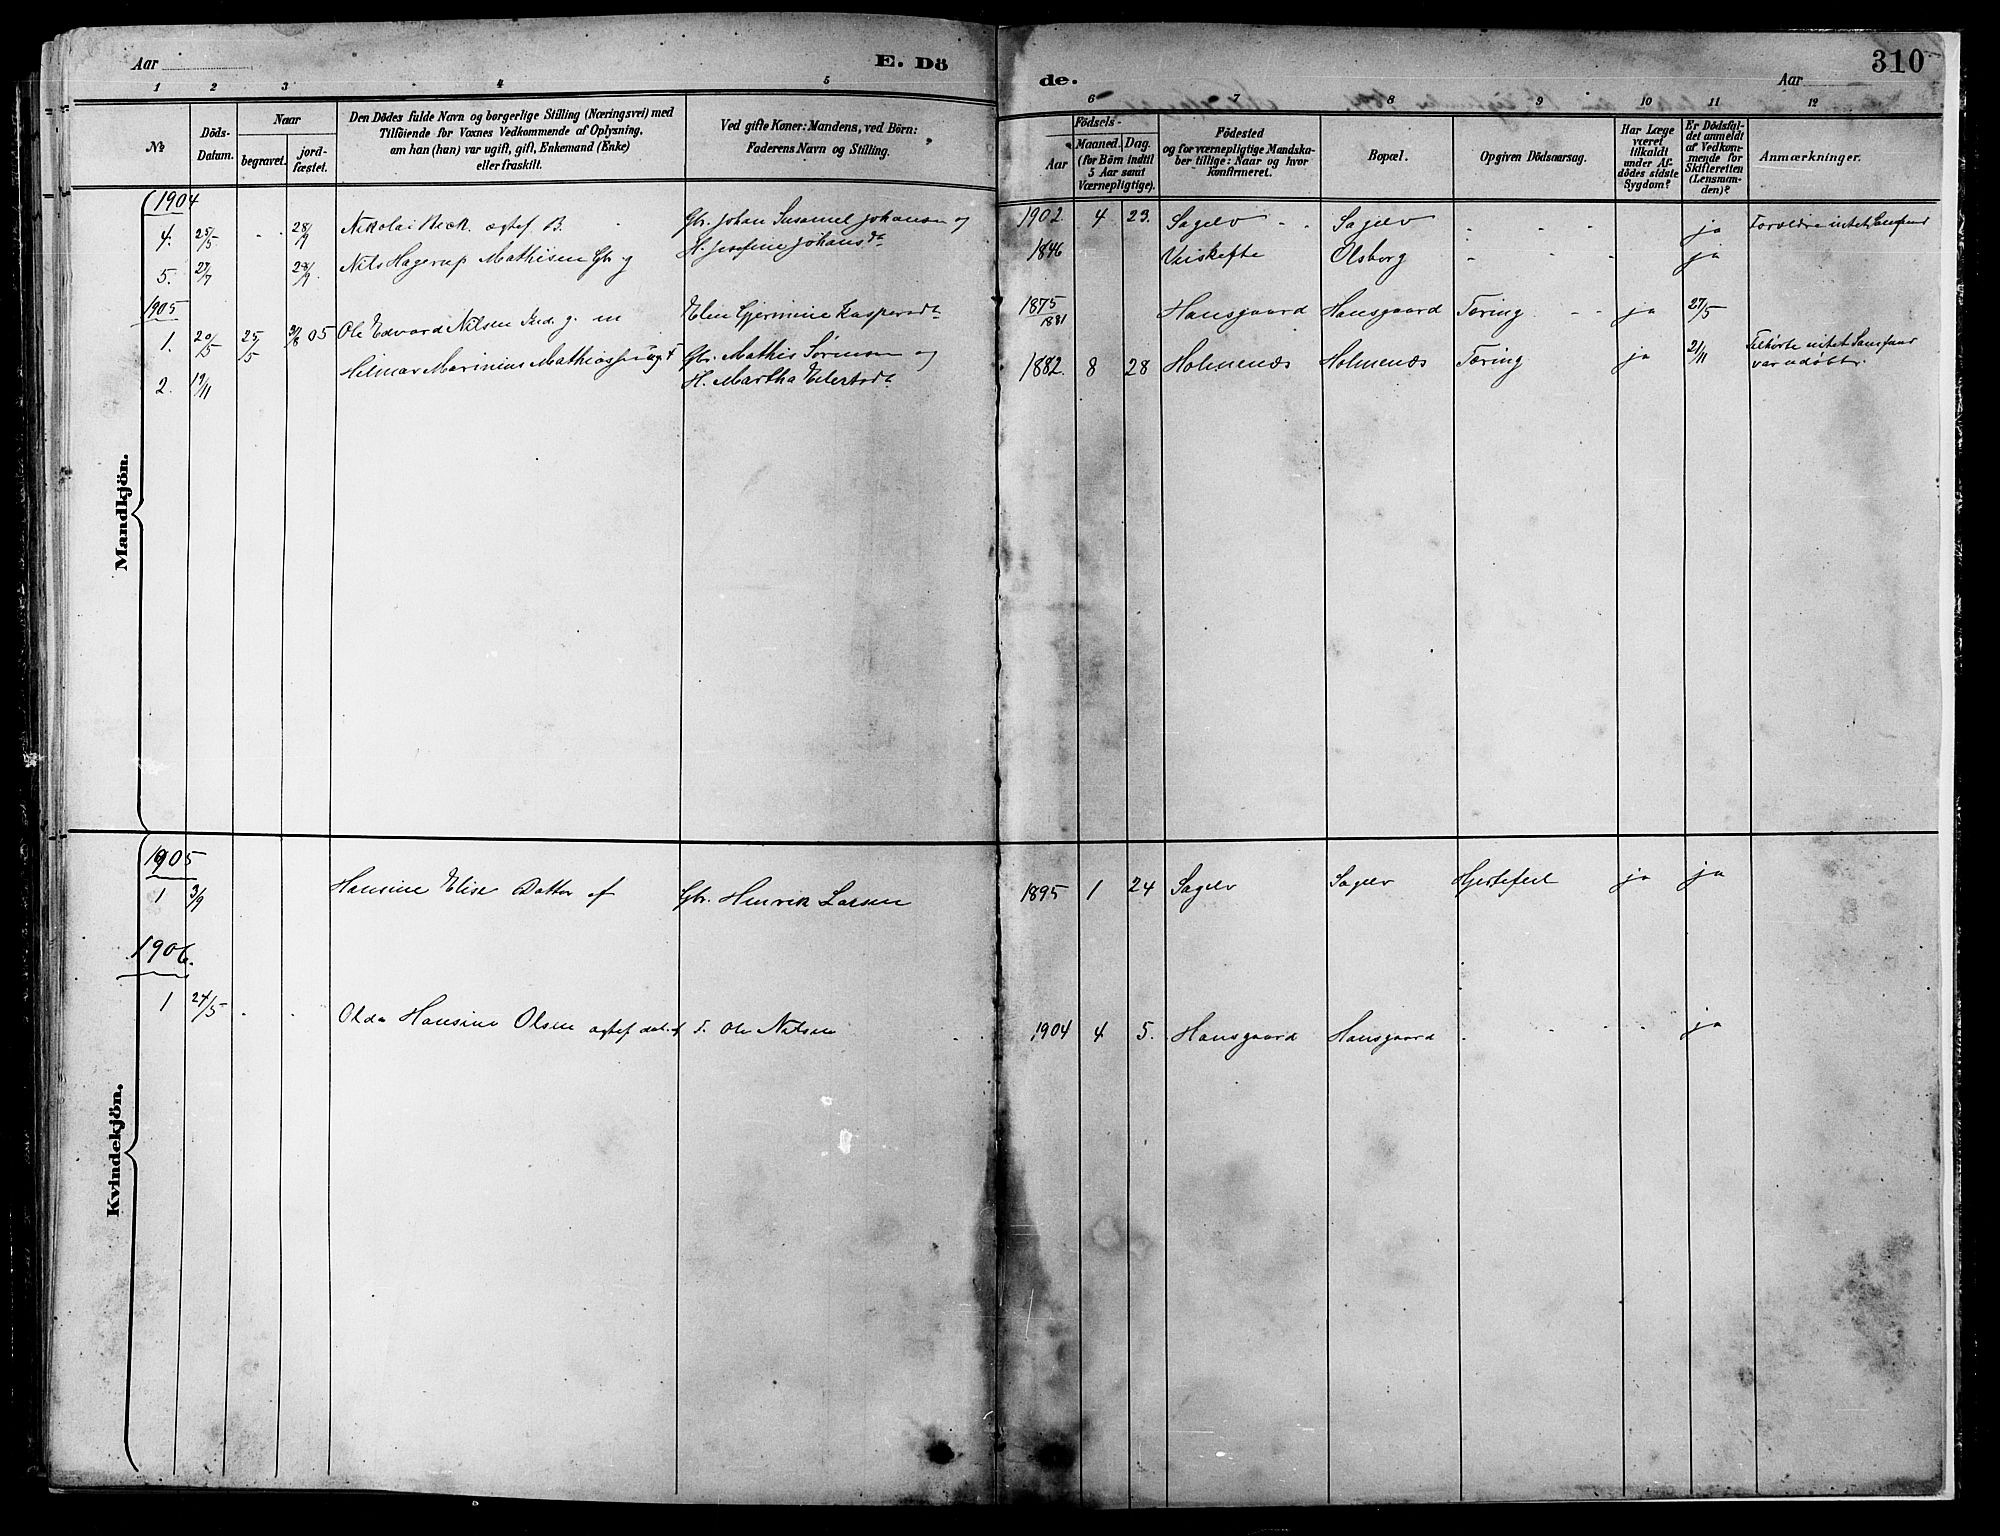 Aar
E. Dö
de.
Aar
310
1 2 3 4 5 6 7 8 9 10 11 12
№
Döds-
Datum.
Naar
begravet.
jord-
fæstet.
Den Dödes fulde Navn og borgerlige Stilling (Næringsvei) med
Tilföiende for Voxnes Vedkommende af Oplysning,
om han (hun) var ugift, gift, Enkemand (Enke)
eller fraskilt.
Ved gifte Koner: Mandens, ved Börn:
Faderens Navn og Stilling.
Födsels-
Aar
Maaned. Dag.
(for Börn indtil
5 Aar samt
Værnepligtige).
Födested
og for værnepligtige Mandska-
ber tillige: Naar og hvor
konfirmeret.
Bopæl.
Opgiven Dödsaarsag.
Har Læge
været
tilkaldt
under Af-
dödes sidste
Sygdom?
Er Dödsfal-
det anmeldt
af Vedkom-
mende for
Skifteretten
(Lensman-
den)?
Anmærkninger.
Mandkjön.
1904
4. 25/5 28/9 Nikolai Beck. ægtef. B. Gbr. Johan Susamel Johansen og
H. Josefine Johansdt 1902 4 23. Sagelv Sagelv ja Forældre intet Samfund
5. 27/7 28/9 Nils Hagerup Mathisen Gbr g 1846 Olsborg ja
1905
1. 20/5 25/5 05 Ole Edvard Nilsen g. m Elen Gjermine Kaspersdt 1875 1881 Hansgaard Hansgaard Tæring ja 27/5
2. 19/11 Hilmar Marinius Gbr. Mathis Sørensen og
H. Martha Eilertsdt 1882. 8 28 Holmenæs Holmenæs Tæring ja 21/11 Tilhørte intet Samfund
var udøbt.
Kvindekjön.
1905
1 3/9 Hansine Elise Datter af Gbr. Henrik Larsen 1895 1 24 Sagelv Sagelv Hjertefeil ja ja
1906.
1 24/5 Olda Hansine Olsen ægtef dat. af Ole Nilsen 1904 4 5. Hansgaard Hansgaard ja